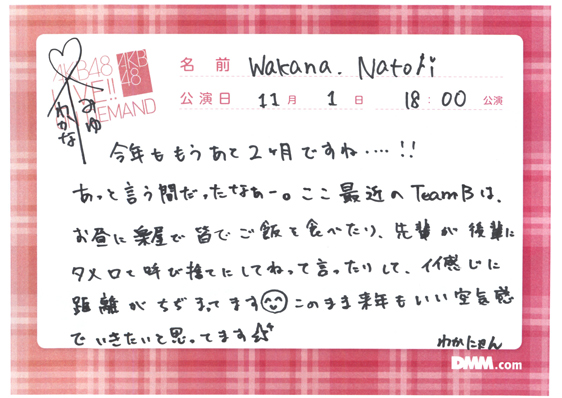 AKB48
LIVE!!
ON DEMAND
AKB
48
みゆ
わかな
名前 Wakana. Natori
公演日 11月 1日 18:00 公演
今年ももうあと2ヶ月ですね‥‥!!
あっと言う間だったなぁー。ここ最近のTeamBは、
お昼に楽屋で皆でご飯を食べたり、先輩が後輩に
タメ口と呼び捨てにしてねって言ったりして、イイ感じに
距離がちぢまってます このまま来年もいい空気感
でいきたいと思ってます
わかにゃん
DMM.com